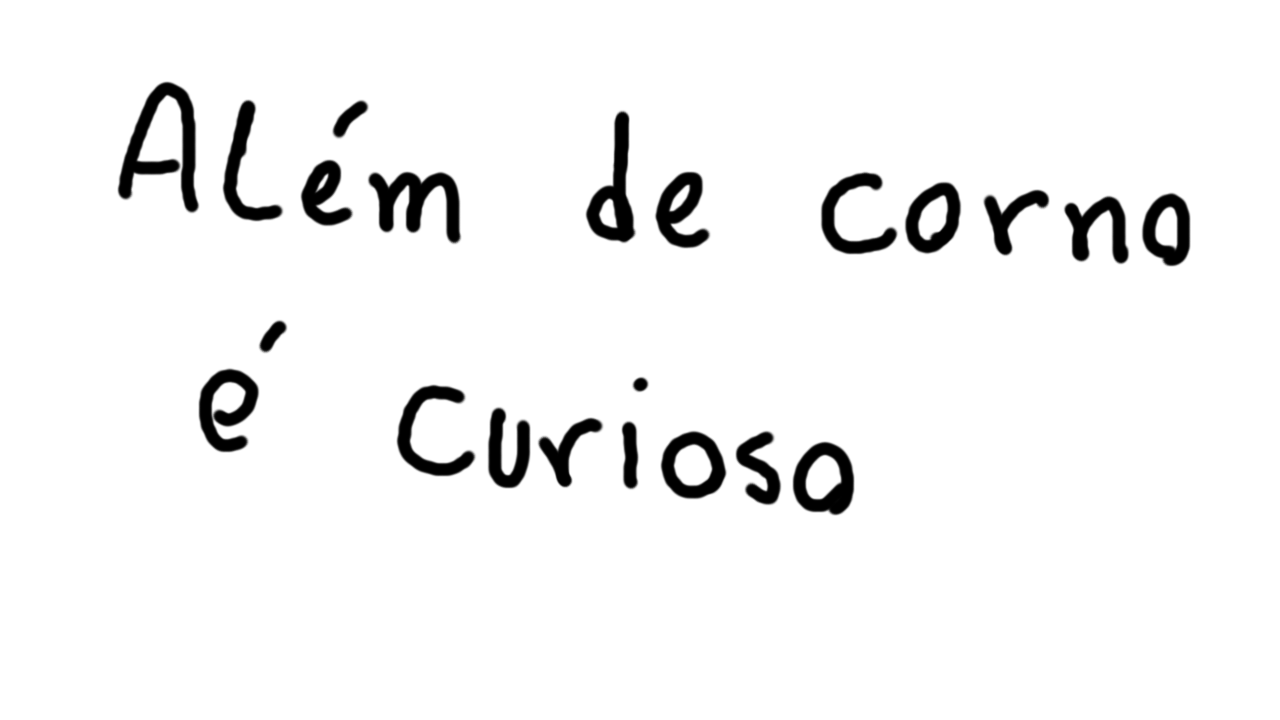 Além de corna
é curiosa